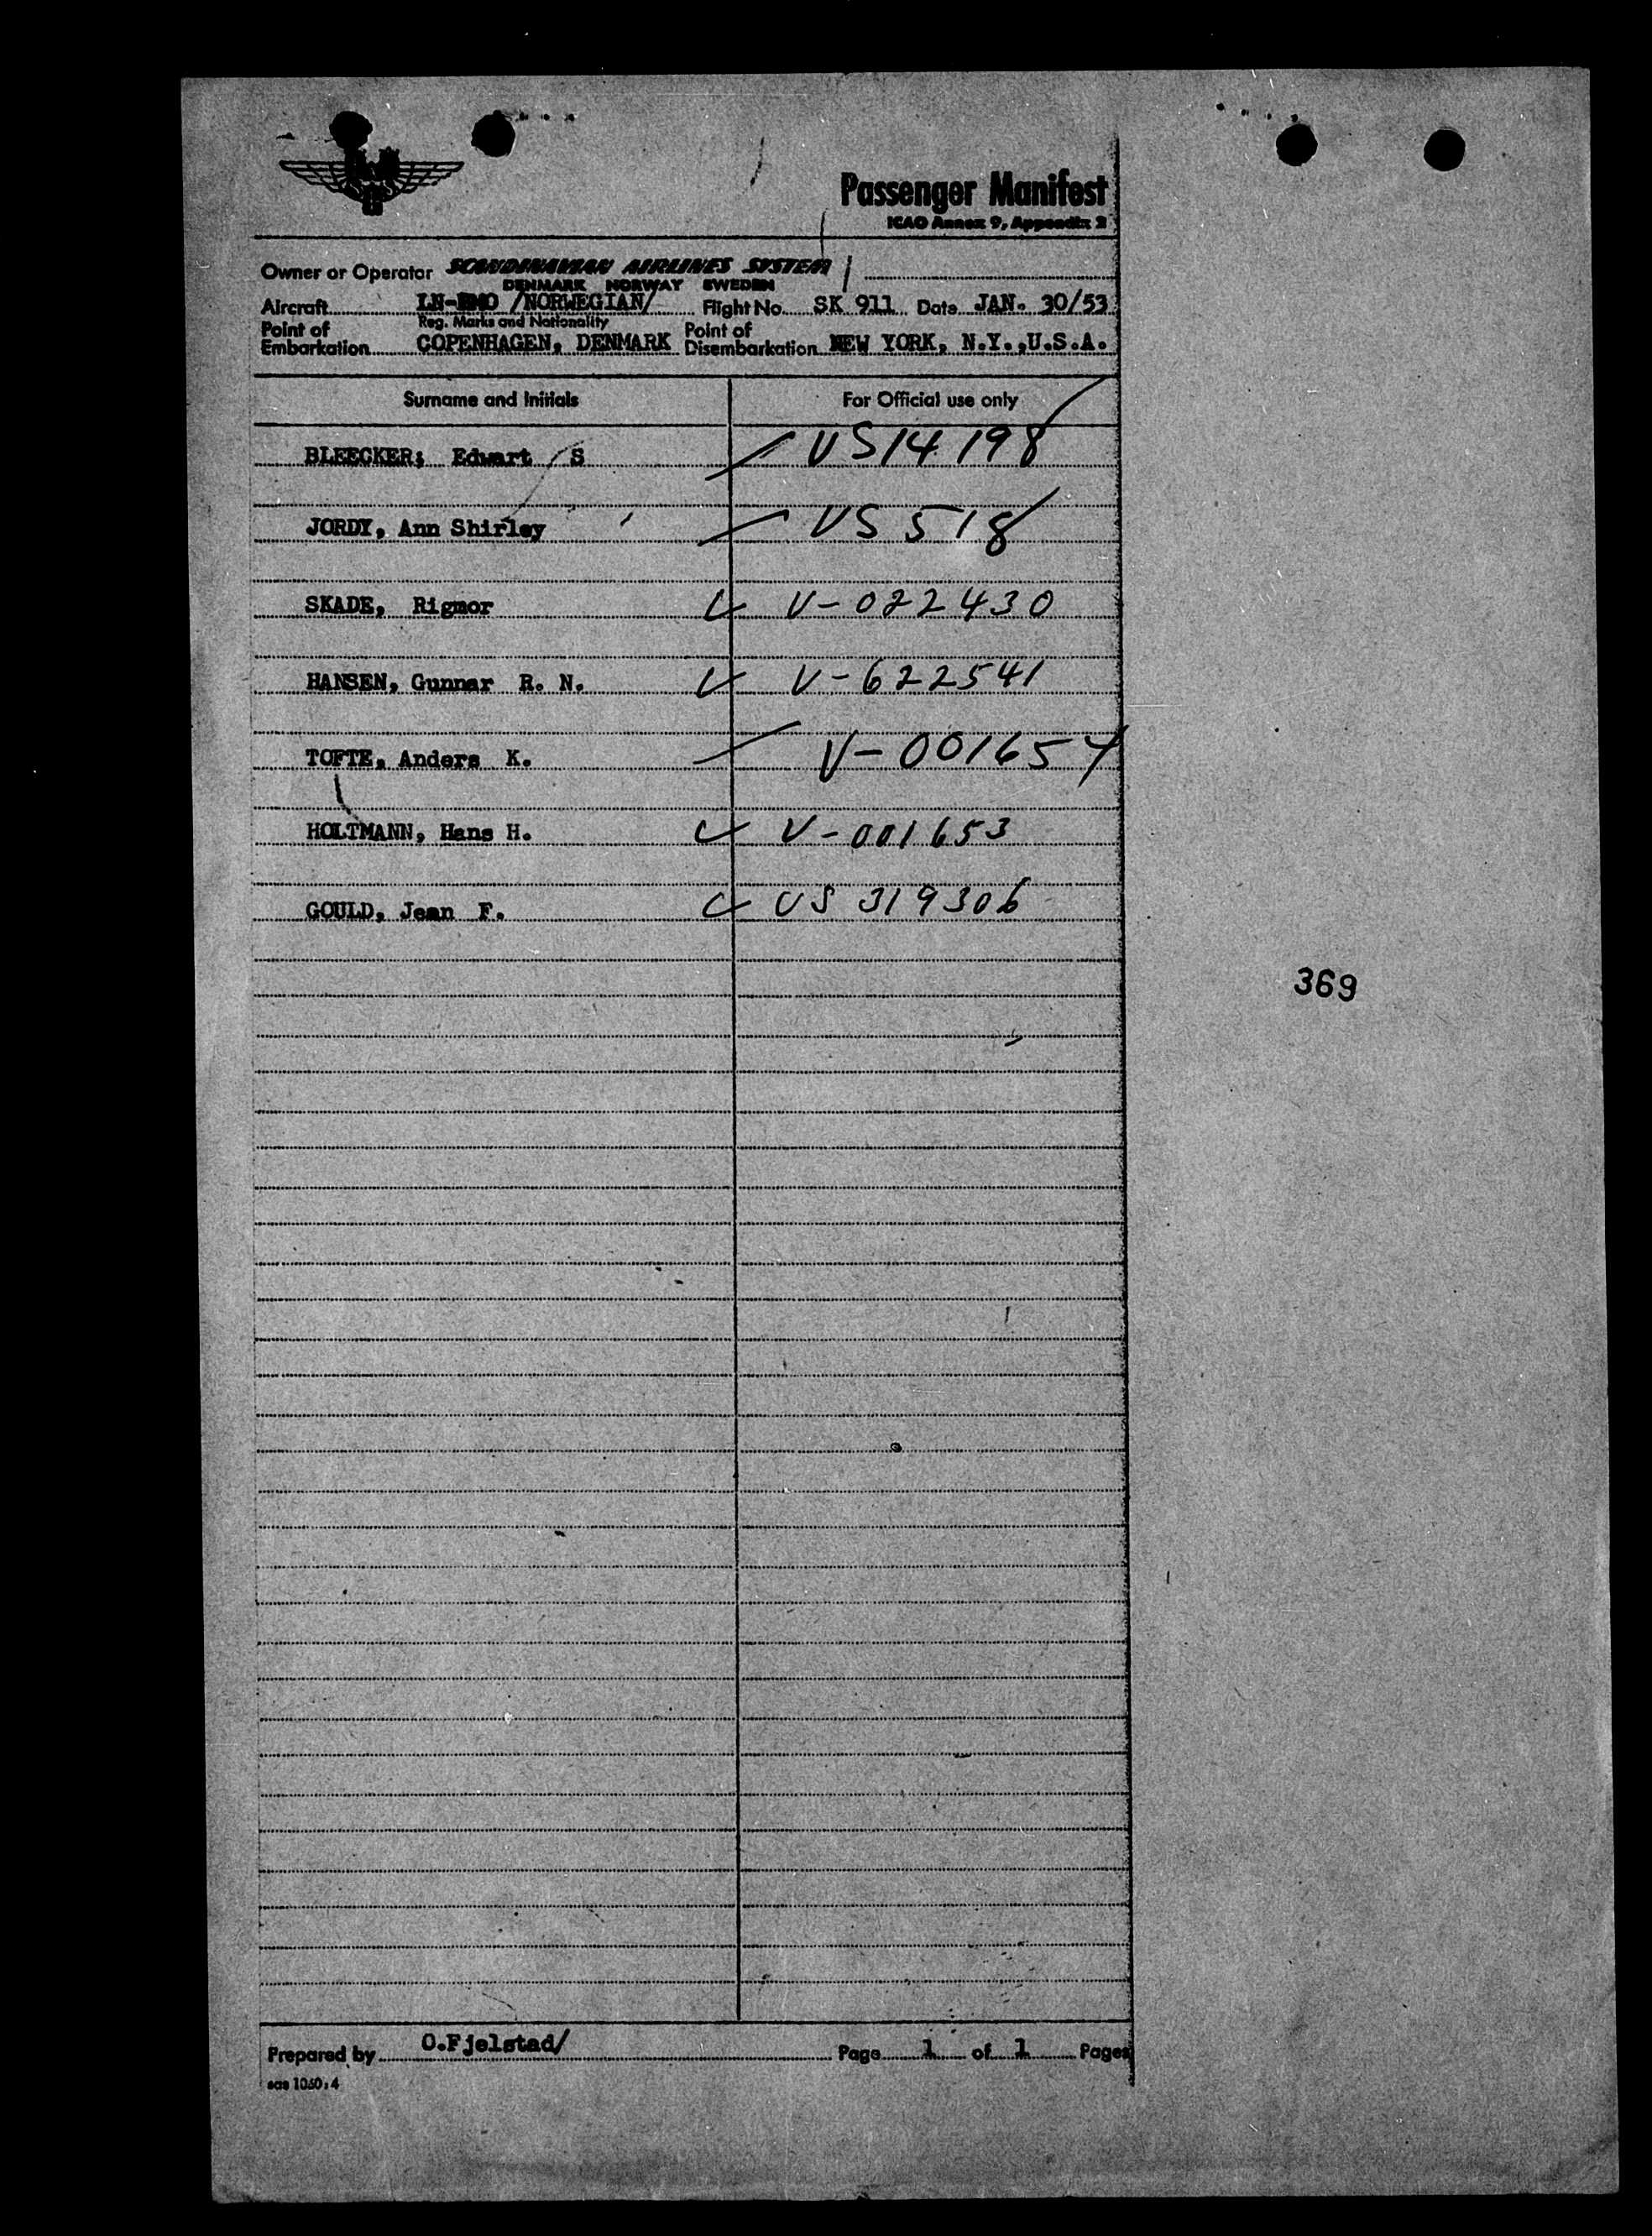 Passenger Manifest
ICAO Annex 9, Appendix 2
Owner or Operator SCANDINAVIAN AIRLINES SYSTEM
DENMARK NORWAY SWEDEN
Aircraft /NORWEGIAN/ Flight No. SK 911 Date JAN. 30/53
Reg. Marks and Nationality
Point of Embarkation COPENHAGEN, DENMARK Point of Disembarkation NEW YORK, N.Y.,U.S.A.
Surname and Initials For Official use only
BLEECKER; Edwart S US 14198
JORDY, Ann Shirley US 518
SKADE, Rigmor V-022430
HANSEN, Gunnar R. N. V-622541
TOFTE, Anders K. V-001654
HOLTMANN, Hans H. V-001653
GOULD, Jean F. US 319306
369
Prepared by O.Fjelstad/ Page 1 of 1 Pages
sas 1050:4